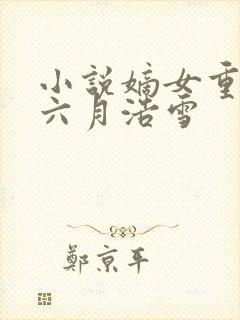 小說嫡女重
六月浩雪
鄭京平